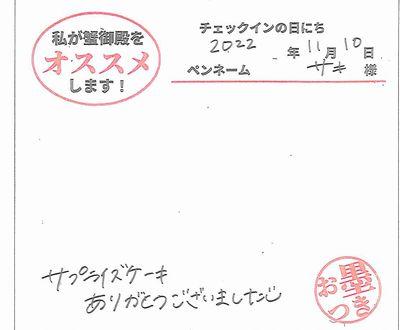 私が蟹御殿を
オススメ
します！
チェックインの日にち
2022年11月10日
ペンネーム ザキ 様
サプライズケーキ
ありがとうございました
お墨つき